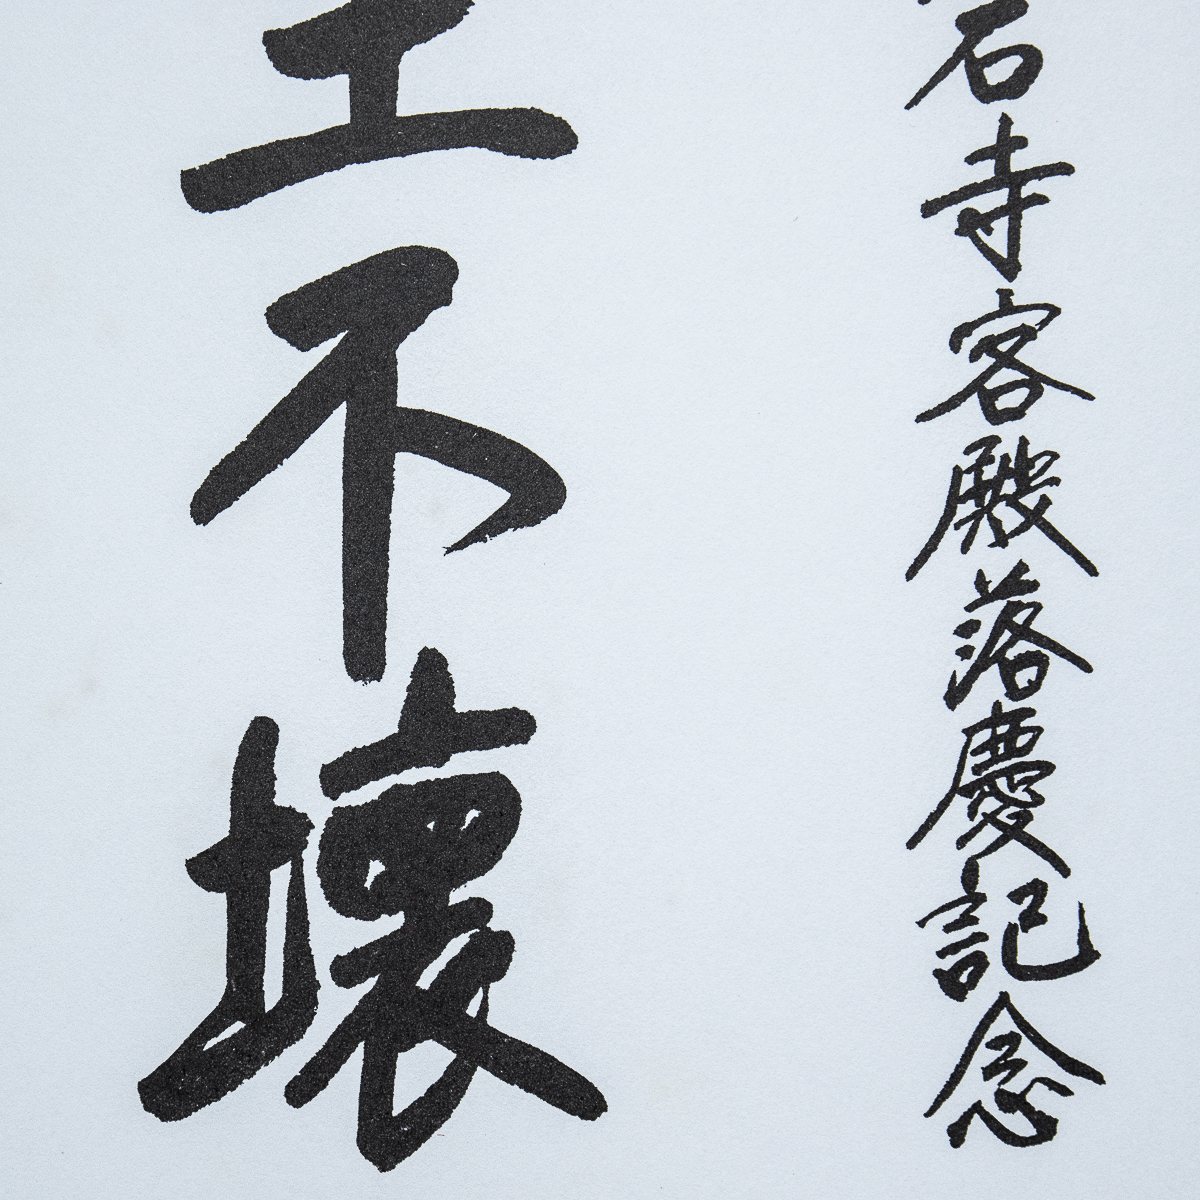 石寺客殿落慶記念
不壊